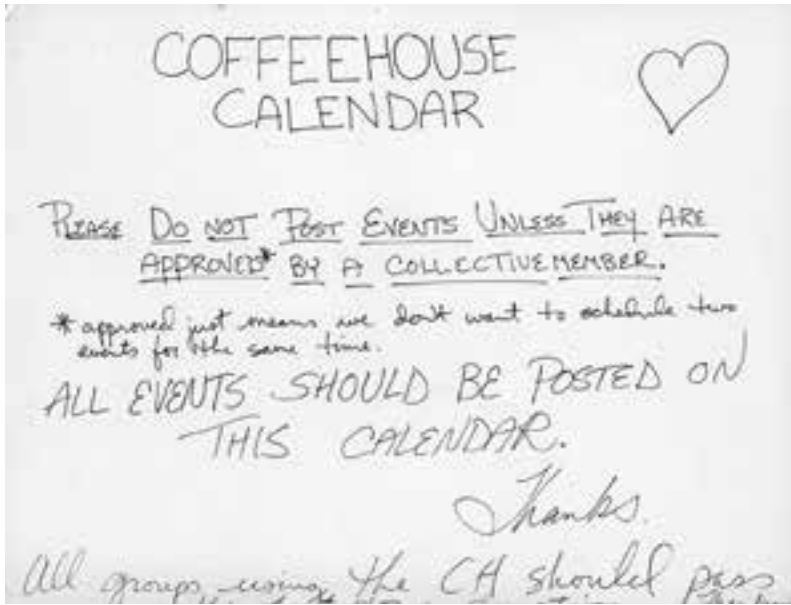 COFFEEHOUSE
CALENDAR
PLEASE DO NOT POST EVENTS UNLESS THEY ARE
APPROVED* BY A COLLECTIVE MEMBER.
* approved just means we don't want to schedule two
events for the same time.
ALL EVENTS SHOULD BE POSTED ON
THIS CALENDAR.
Thanks.
All groups using the CH should pass